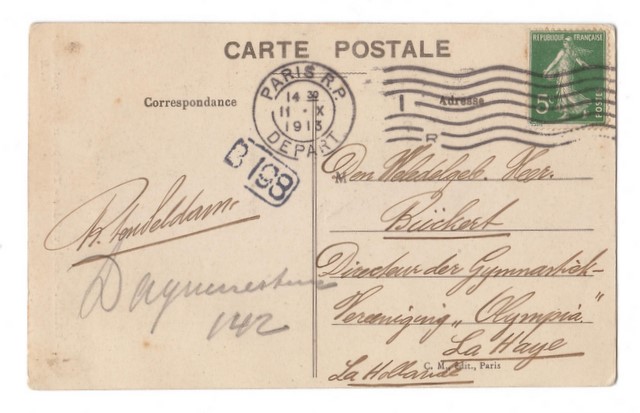 CARTE POSTALE
REPUBLIQUE FRANÇAISE
5c
POSTE
PARIS R.P.
14 30
11 · X
1913
DEPART
R
Correspondance
Adresse
B 198
M
Den Weledelgeb. Heer.
Büchert
Directeur der Gymnastiek-
Vereeniging „Olympia."
La Haye
La Hollande
142
C. M., Edit., Paris